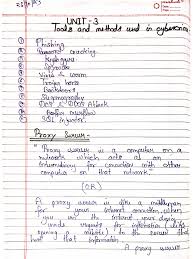 UNIT - 3
Tools and methods used in cybercrime
Phishing
Password cracking
Keyloggers
Spywares
Virus & worm
Trojan horse
Backdoors
Steganography
DoS & DDoS Attack
Buffer overflow
SQL Injection
Proxy Server -
Proxy server is a computer on a
network which acts as an
intermediary for connection with other
computers on that network.
(OR)
A proxy server is like a middleman
for your internet connection. When
you use the internet your
sends requests for information
to the server
that information.
A proxy server